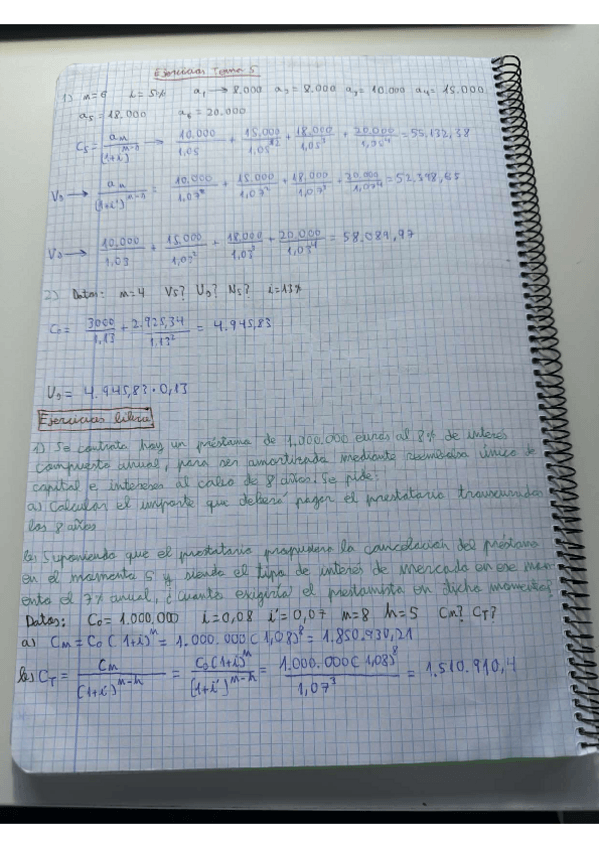 Ejercicios Tema 5
1) n=6 i=5% a₁ → 8.000 a₂= 8.000 a₃= 10.000 a₄= 15.000
a₅= 18.000 a₆= 20.000
C₅= aₙ/(1+i)^(n-h) → 10.000/1,05 + 15.000/1,05² + 18.000/1,05³ + 20.000/1,05⁴ = 55.132,38
V₅ → aₙ/(1+i')^(n-h) = 10.000/1,07 + 15.000/1,07² + 18.000/1,07³ + 20.000/1,07⁴ = 52.398,65
V₅ → 10.000/1,03 + 15.000/1,03² + 18.000/1,03³ + 20.000/1,03⁴ = 58.084,97
2) Datos: n=4 V₅? U₅? N₅? i=13%
C₀= 3000/1,13 + 2.925,34/1,13² = 4.945,83
U₅ = 4.945,83 · 0,13
Ejercicios libro
1) Se contrata hoy un préstamo de 1.000.000 euros al 8% de interés
compuesto anual, para ser amortizado mediante reembolso único de
capital e intereses al cabo de 8 años. Se pide:
a) Calcular el importe que deberá pagar el prestatario transcurridos
los 8 años
b) Suponiendo que el prestatario propusiera la cancelación del préstamo
en el momento 5 y siendo el tipo de interés de mercado en ese mom
ento el 7% anual, ¿cuánto exigiría el prestamista en dicho momento?
Datos: C₀= 1.000.000 i=0,08 i'=0,07 n=8 h=5 Cn? Cт?
a) Cn = C₀ (1+i)ⁿ = 1.000.000 (1,08)⁸ = 1.850.930,21
b) Cт = Cn/(1+i')^(n-h) = C₀(1+i)ⁿ/(1+i')^(n-h) = 1.000.000 (1,08)⁸/1,07³ = 1.510.910,4